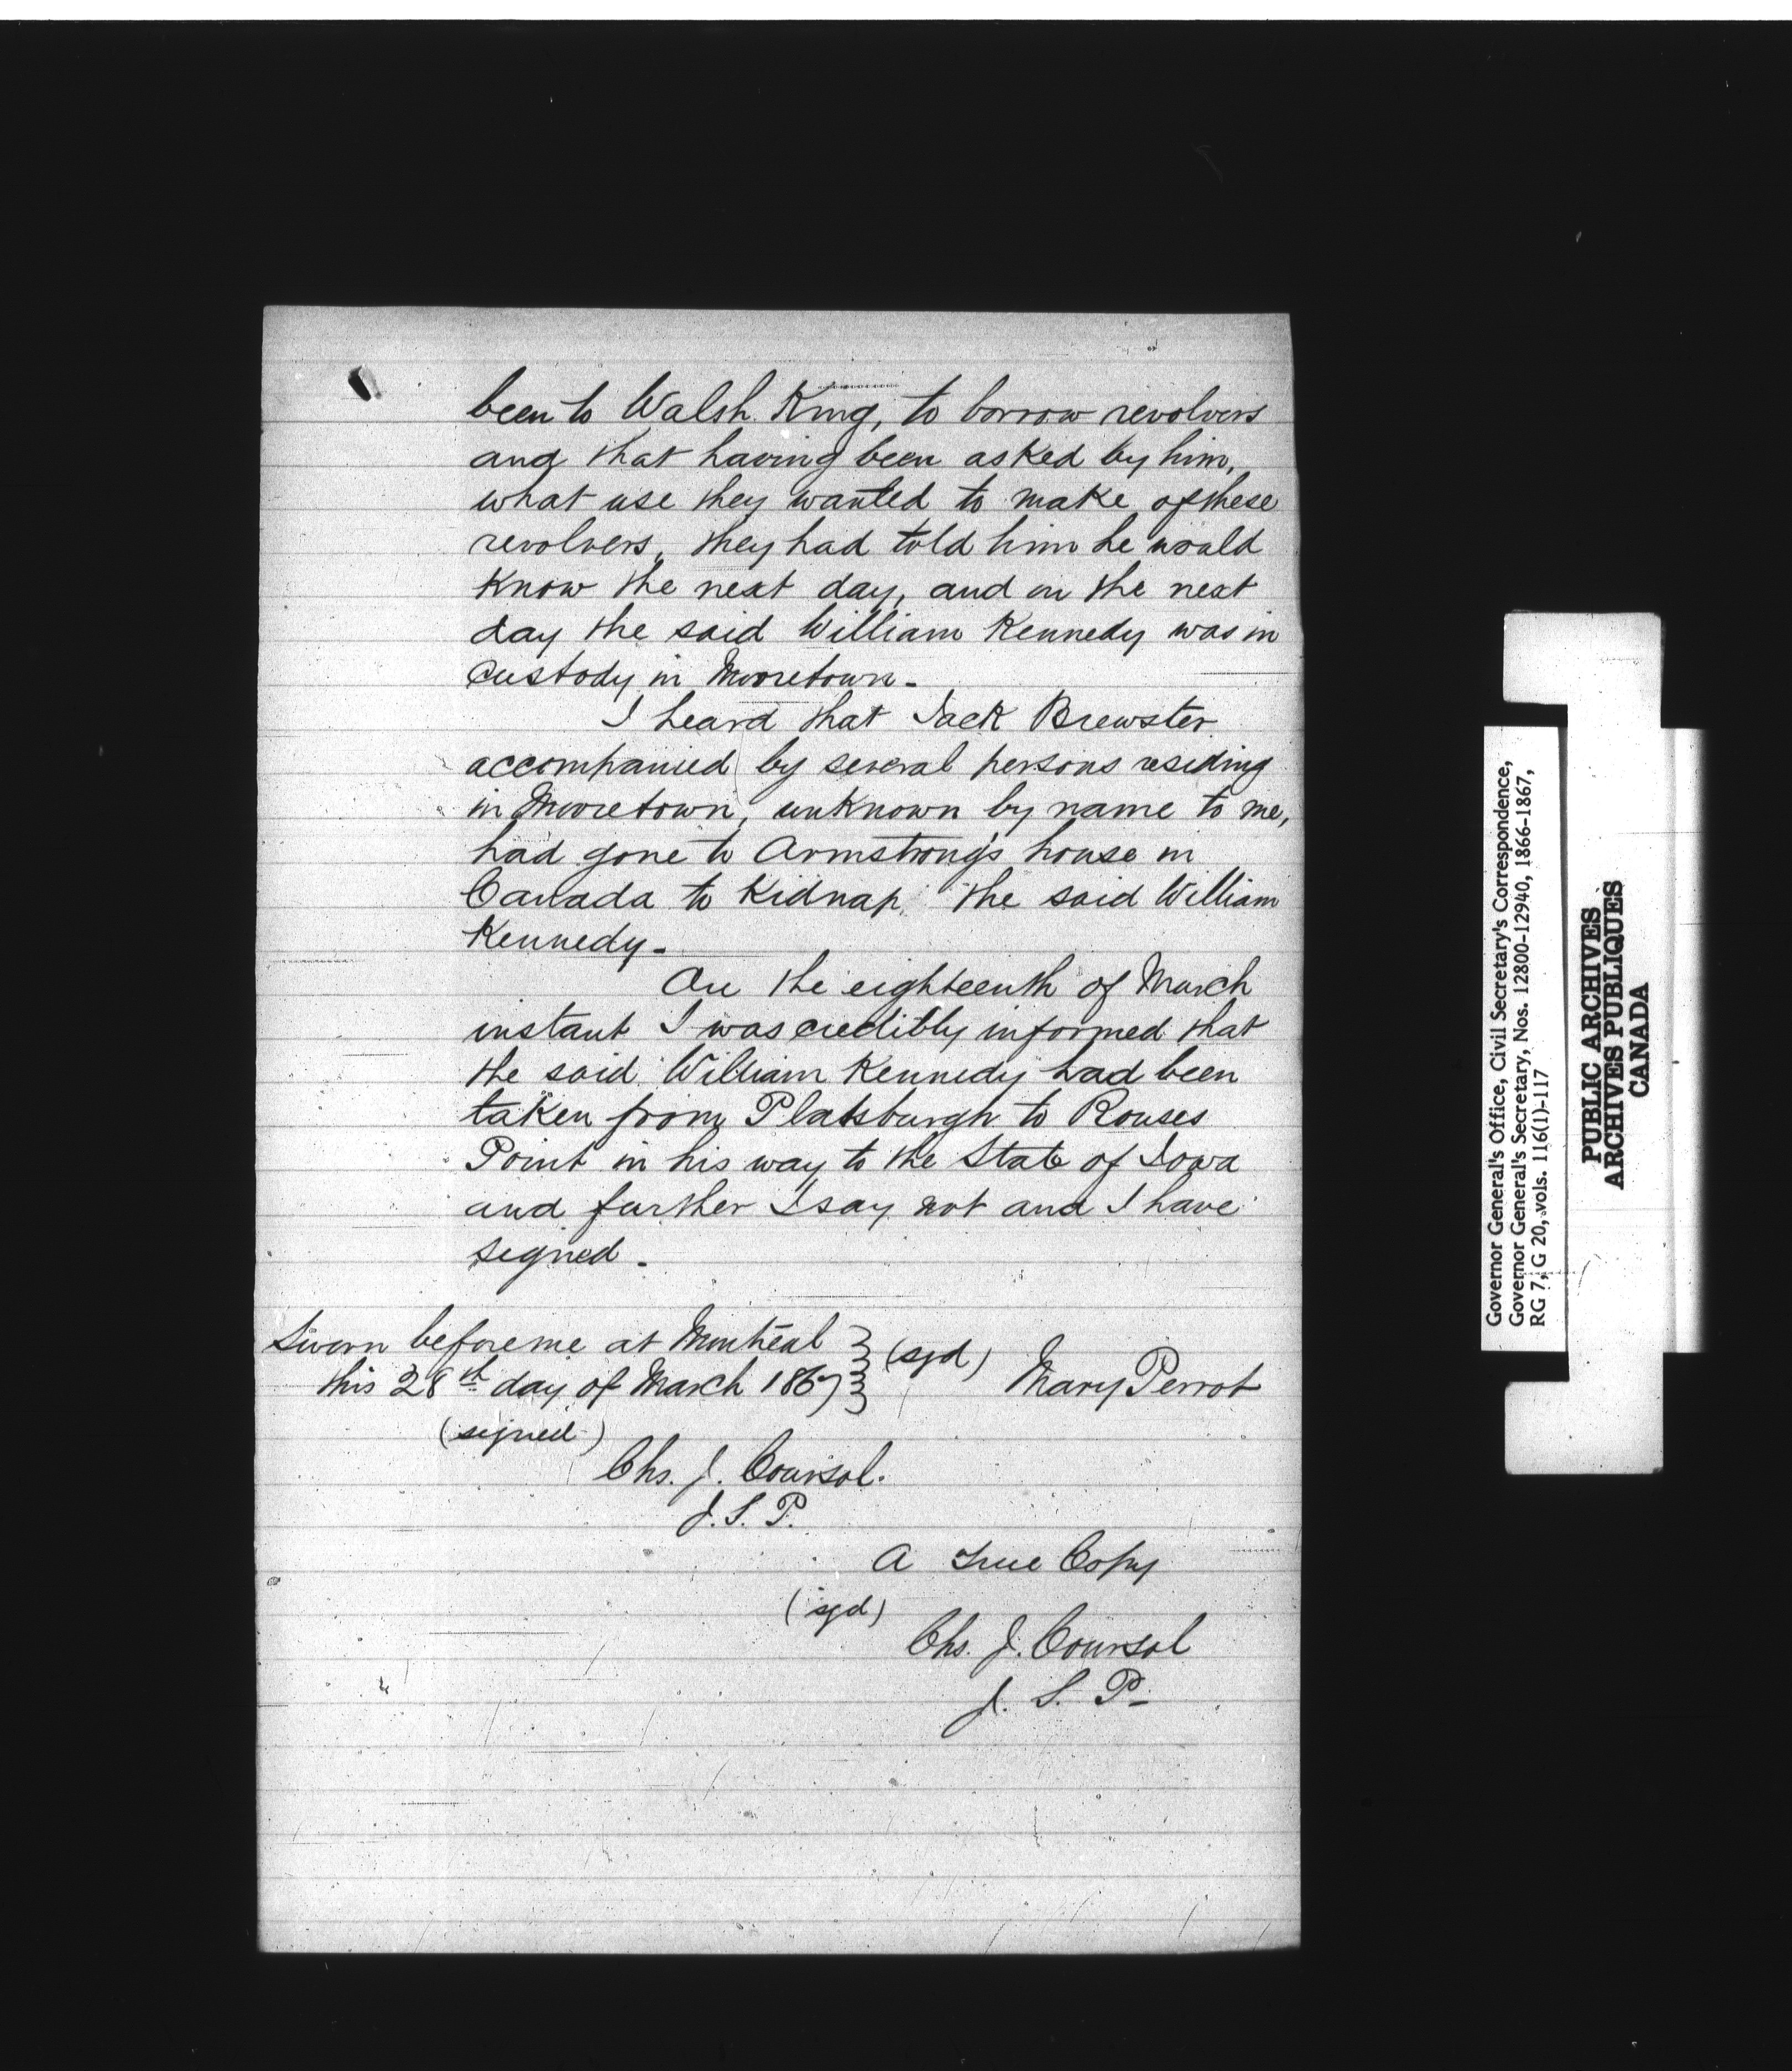 been to Walsh King, to borrow revolvers
and that having been asked by him,
what use they wanted to make of these
revolvers, they had told him he would
Know the next day, and on the next
day the said William Kennedy was in
custody in Mooretown.
I heard that Jack Brewster
accompanied by several persons residing
in Mooretown, unknown by name to me,
had gone to Armstrong's house in
Canada to Kidnap the said William
Kennedy.
On the eighteenth of March
instant I was credibly informed that
the said William Kennedy had been
taken from Platsburgh to Rouses
Point in his way to the State of Iowa
and further I say not and I have
signed.
Sworn before me at Montreal
this 28th day of March 1867
(sgd) Mary Perrot
(signed)
Chs. J. Coursol.
J. S. P.
A True Copy
(sgd)
Chs. J. Coursol
J. S. P.
Governor General's Office, Civil Secretary's Correspondence,
Governor General's Secretary, Nos. 12800-12940, 1866-1867,
RG 7, G 20, vols. 116(1)-117
PUBLIC ARCHIVES
ARCHIVES PUBLIQUES
CANADA